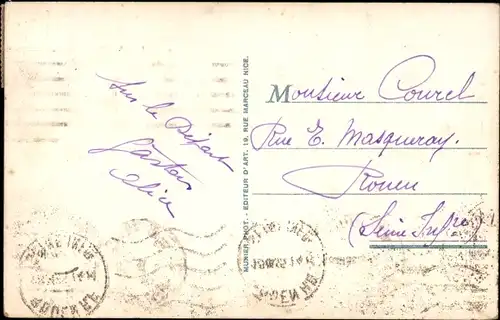 Sur le Départ
Gaston
Alice
MUNIER PHOT. - EDITEUR D'ART. 19, RUE MARCEAU NICE.
Monsieur Courel
Rue E. Masqueray.
Rouen
(Seine Infre)